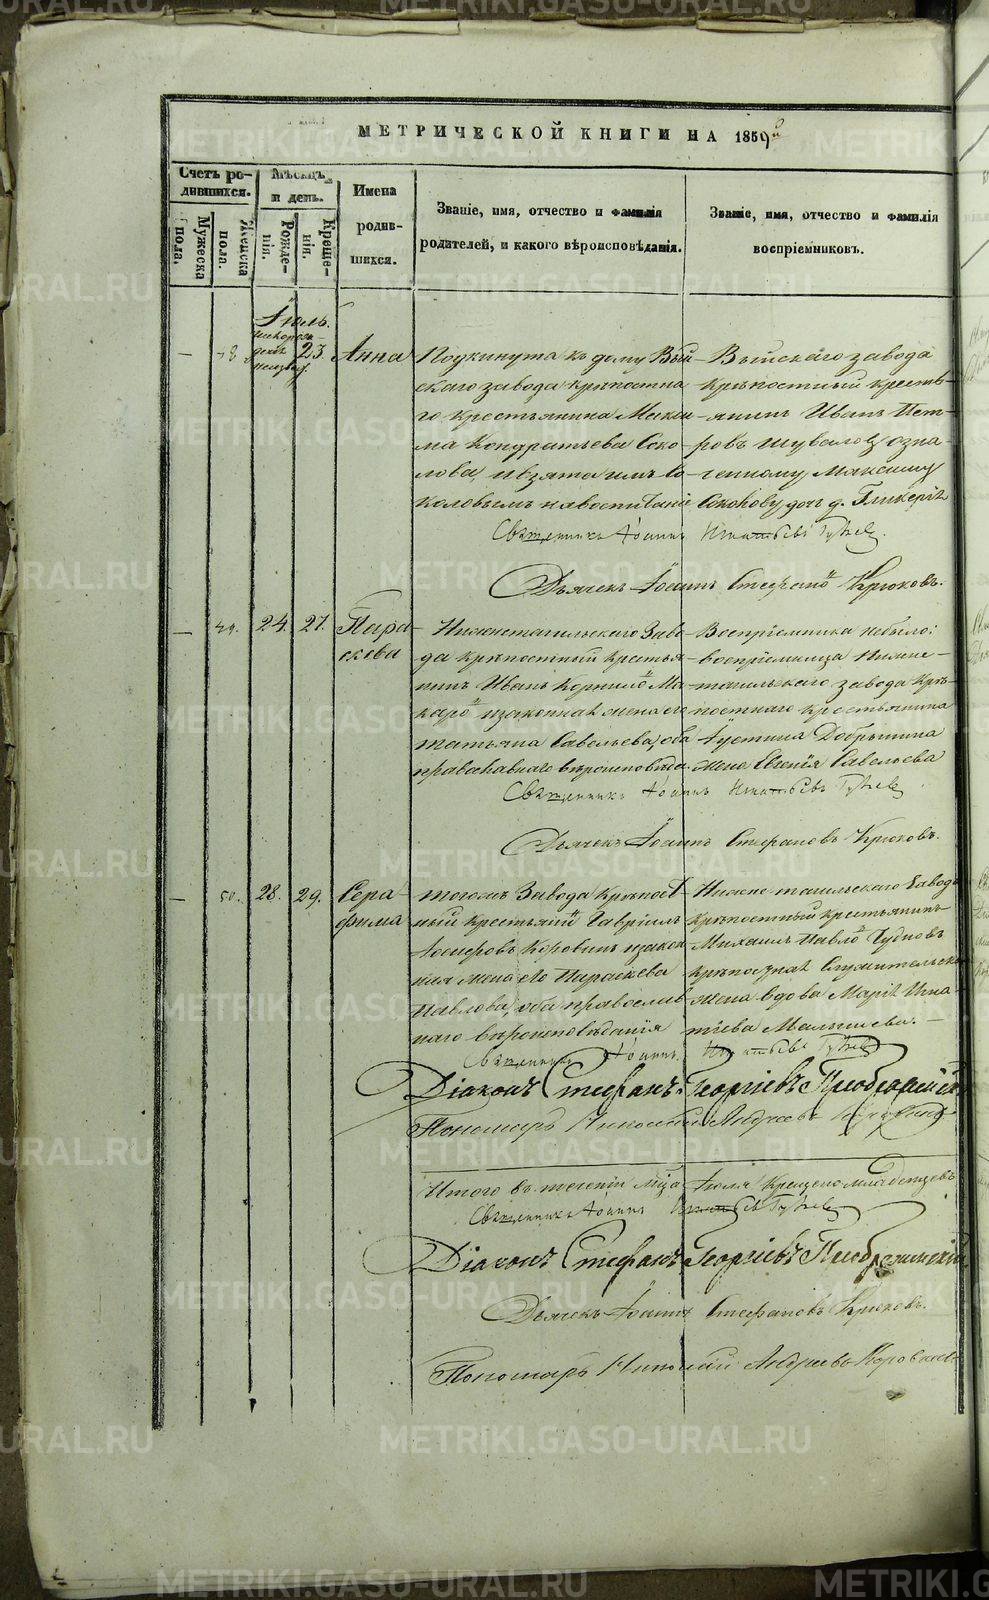 МЕТРИЧЕСКОЙ КНИГИ НА 1859й
Счетъ родившихся.
Мѣсяцъ и день.
Имена родившихся.
Званіе, имя, отчество и фамилія родителей, и какого вѣроисповѣданія.
Званіе, имя, отчество и фамилія воспріемниковъ.
Мужеска пола.
Женска пола.
Рожденія.
Крещенія.
Іюль.
23
Анна
Подкинута къ дому Вый
скаго завода крѣпостна
го крестьянина Макси
ма Кондратьева Соко
лова, и взята имъ Со
коловымъ на воспитаніе
Выйскаго завода
крѣпостный кресть
янинъ Иванъ Пет
ровъ Шуваловъ озна
ченному Максиму
Соколову дочь д. Гликерія
Священникъ Іоаннъ Игнатьевъ
Дьячекъ Іоаннъ Стефановъ Крюковъ.
24. 27.
Пара
скева
Нижнетагильскаго Заво
да крѣпостный крестья
нинъ Иванъ Корнило Ма
каро и законная жена его
Татьяна Савельева, оба
православнаго вѣроисповѣда.
Воспріемника небыло:
воспріемница Нижне
тагильскаго завода крѣ
постнаго крестьянина
Іустина Добрынина
жена Евгенія Савельева
Священникъ Іоаннъ Игнатьевъ
Дьячекъ Іоаннъ Стефановъ Крюковъ.
50. 28. 29.
Сера
фима
тогожъ Завода крѣпост
ный крестьянинъ Гавріилъ
Іосифовъ Коровинъ и закон
ная жена его Параскева
Павлова, оба православ
наго вѣроисповѣданія
Нижнетагильскаго Завода
крѣпостный крестьянинъ
Михаилъ Павло Чудновъ
крѣпостная Служительска
жена вдова Марія Игна
тіева Малышева.
Священникъ Іоаннъ Игнатьевъ
Діаконъ Стефанъ Георгіевъ Преображенскій
Пономарь Николай Андреевъ
Итого въ теченіи мѣсяца Іюля крещено младенцевъ
Священникъ Іоаннъ Игнатьевъ
Діаконъ Стефанъ Георгіевъ Преображенскій
Дьячекъ Іоаннъ Стефановъ Крюковъ.
Пономарь Николай Андреевъ Коровинъ
METRIKI.GASO-URAL.RU